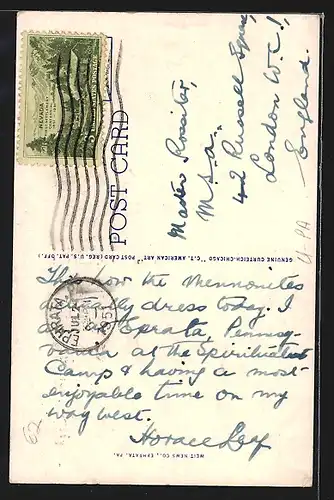 NEVADA
UNITED STATES POSTAGE
POST CARD
Master Rossiter,
M.S.A.
42 Russell Square,
London W.C.1,
England.
U-PA
GENUINE CURTEICH-CHICAGO "C.T. AMERICAN ART" POST CARD (REG. U.S. PAT. OFF.)
EPHRATA
AUG
1951
PA.
This how the Mennonites
actually dress today. I
am at Ephrata, Pennsyl-
vania at the Spiritualist
Camp & having a most
enjoyable time on my
way west.
Horace Leaf
62
WEIT NEWS CO., EPHRATA, PA.